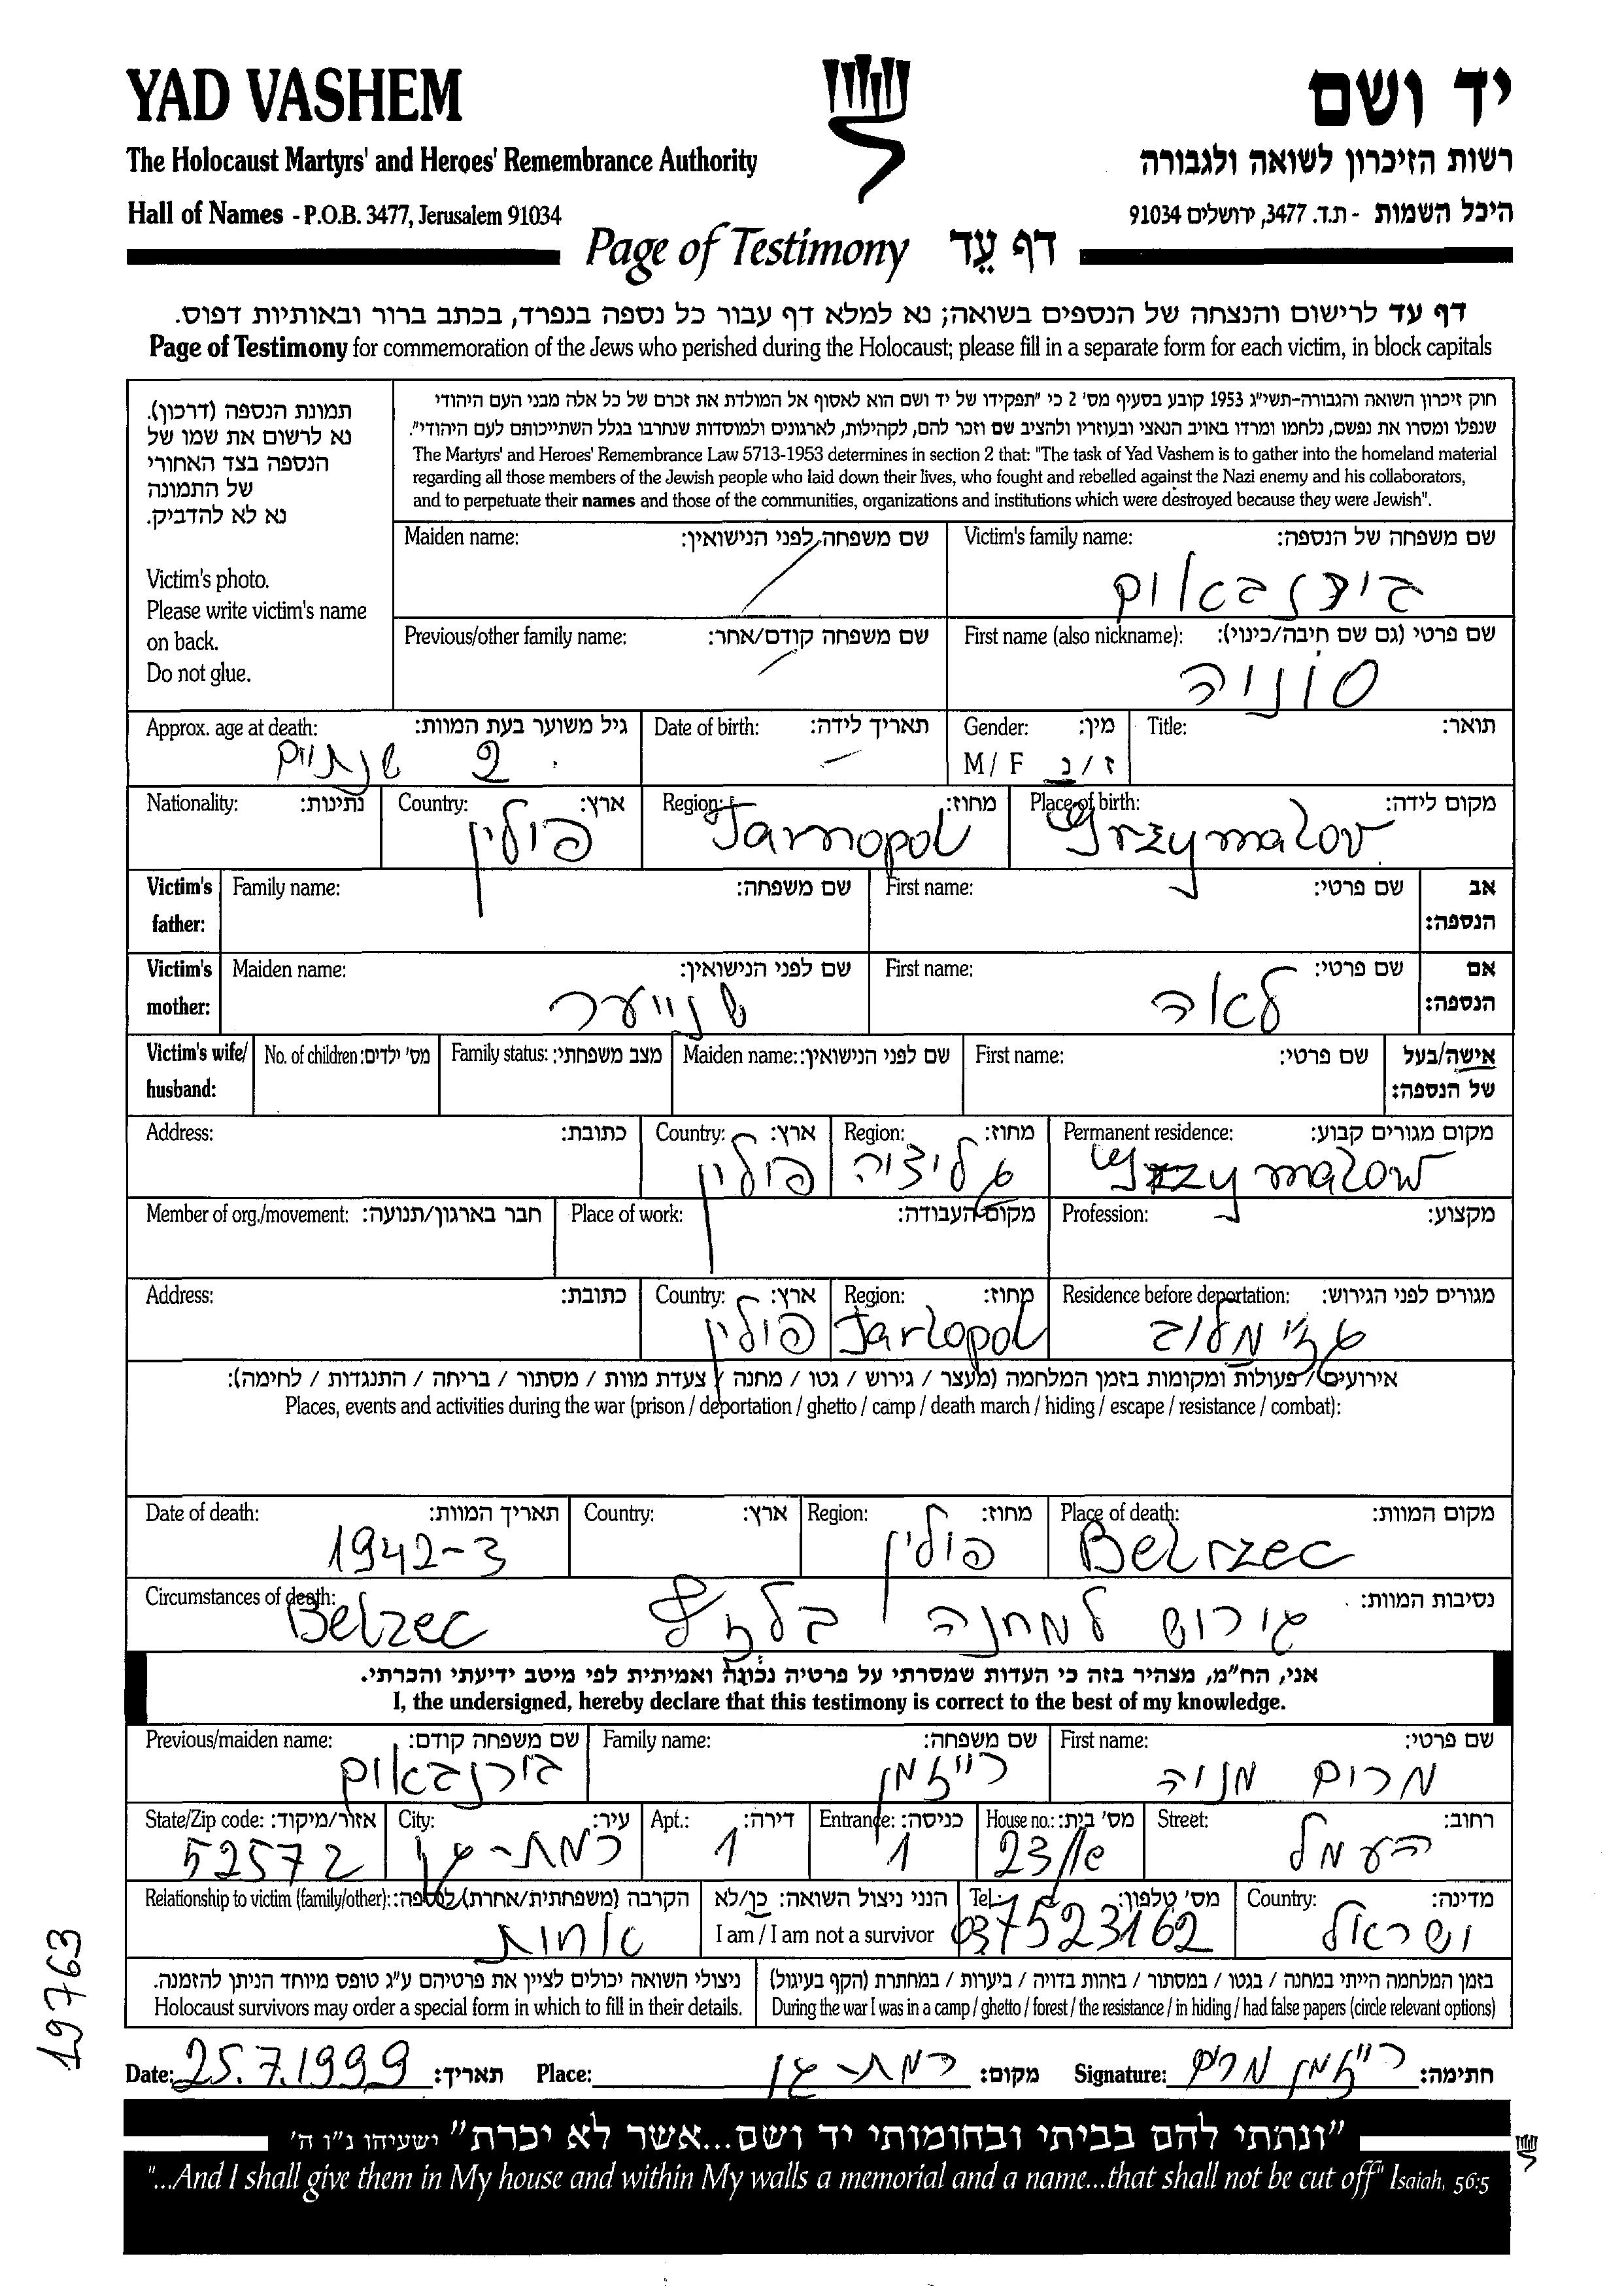 YAD VASHEM
יד ושם
The Holocaust Martyrs' and Heroes' Remembrance Authority
רשות הזיכרון לשואה ולגבורה
Hall of Names - P.O.B. 3477, Jerusalem 91034
היכל השמות - ת.ד. 3477, ירושלים 91034
Page of Testimony דף עֵד
דף עד לרישום והנצחה של הנספים בשואה; נא למלא דף עבור כל נספה בנפרד, בכתב ברור ובאותיות דפוס.
Page of Testimony for commemoration of the Jews who perished during the Holocaust; please fill in a separate form for each victim, in block capitals
תמונת הנספה (דרכון).
נא לרשום את שמו של
הנספה בצד האחורי
של התמונה
נא לא להדביק.
Victim's photo.
Please write victim's name
on back.
Do not glue.
חוק זיכרון השואה והגבורה-תשי"ג 1953 קובע בסעיף מס' 2 כי "תפקידו של יד ושם הוא לאסוף אל המולדת את זכרם של כל אלה מבני העם היהודי
שנפלו ומסרו את נפשם, נלחמו ומרדו באויב הנאצי ובעוזריו ולהציב שם וזכר להם, לקהילות, לארגונים ולמוסדות שנחרבו בגלל השתייכותם לעם היהודי".
The Martyrs' and Heroes' Remembrance Law 5713-1953 determines in section 2 that: "The task of Yad Vashem is to gather into the homeland material
regarding all those members of the Jewish people who laid down their lives, who fought and rebelled against the Nazi enemy and his collaborators,
and to perpetuate their names and those of the communities, organizations and institutions which were destroyed because they were Jewish".
Maiden name: שם משפחה לפני הנישואין: Victim's family name: שם משפחה של הנספה:
Previous/other family name: שם משפחה קודם/אחר: First name (also nickname): שם פרטי (גם שם חיבה/כינוי):
סוניה
Approx. age at death: גיל משוער בעת המוות: Date of birth: תאריך לידה: Gender: מין: Title: תואר:
2 שנתיים M / F ז / נ
Nationality: נתינות: Country: ארץ: Region: מחוז: Place of birth: מקום לידה:
פולין Tarnopol Grzymalov
Victim's father: Family name: שם משפחה: First name: שם פרטי: אב הנספה:
Victim's mother: Maiden name: שם לפני הנישואין: First name: שם פרטי: אם הנספה:
שנייער לאה
Victim's wife/ husband: No. of children: מס' ילדים: Family status: מצב משפחתי: Maiden name: שם לפני הנישואין: First name: שם פרטי: אישה/בעל של הנספה:
Address: כתובת: Country: ארץ: Region: מחוז: Permanent residence: מקום מגורים קבוע:
פולין גליציה Grzymalow
Member of org./movement: חבר בארגון/תנועה: Place of work: מקום העבודה: Profession: מקצוע:
Address: כתובת: Country: ארץ: Region: מחוז: Residence before deportation: מגורים לפני הגירוש:
פולין Tarlopol גז'ימלוב
אירועים / פעולות ומקומות בזמן המלחמה (מעצר / גירוש / גטו / מחנה / צעדת מוות / מסתור / בריחה / התנגדות / לחימה):
Places, events and activities during the war (prison / deportation / ghetto / camp / death march / hiding / escape / resistance / combat):
Date of death: תאריך המוות: Country: ארץ: Region: מחוז: Place of death: מקום המוות:
1942-3 פולין Belrzec
Circumstances of death: נסיבות המוות:
גירוש למחנה בלזץ Belzec
אני, הח"מ, מצהיר בזה כי העדות שמסרתי על פרטיה נכונה ואמיתית לפי מיטב ידיעתי והכרתי.
I, the undersigned, hereby declare that this testimony is correct to the best of my knowledge.
Previous/maiden name: שם משפחה קודם: Family name: שם משפחה: First name: שם פרטי:
בירנבאום רייזמן מרים מניה
State/Zip code: אזור/מיקוד: City: עיר: Apt.: דירה: Entrance: כניסה: House no.: מס' בית: Street: רחוב:
52572 רמת-גן 1 1 23/א העמל
Relationship to victim (family/other): הקרבה (משפחתית/אחרת) לנספה: הנני ניצול השואה: כן/לא Tel.: מס' טלפון: Country: מדינה:
אחות I am / I am not a survivor 037523162 ישראל
ניצולי השואה יכולים לציין את פרטיהם ע"ג טופס מיוחד הניתן להזמנה.
Holocaust survivors may order a special form in which to fill in their details.
בזמן המלחמה הייתי במחנה / בגטו / במסתור / בזהות בדויה / ביערות / במחתרת (הקף בעיגול)
During the war I was in a camp / ghetto / forest / the resistance / in hiding / had false papers (circle relevant options)
Date: 25.7.1999 תאריך: Place: רמת-גן מקום: Signature: רייזמן מרים חתימה:
197763
"ונתתי להם בביתי ובחומותי יד ושם...אשר לא יכרת" ישעיהו נ"ו ה'
"...And I shall give them in My house and within My walls a memorial and a name...that shall not be cut off" Isaiah, 56:5